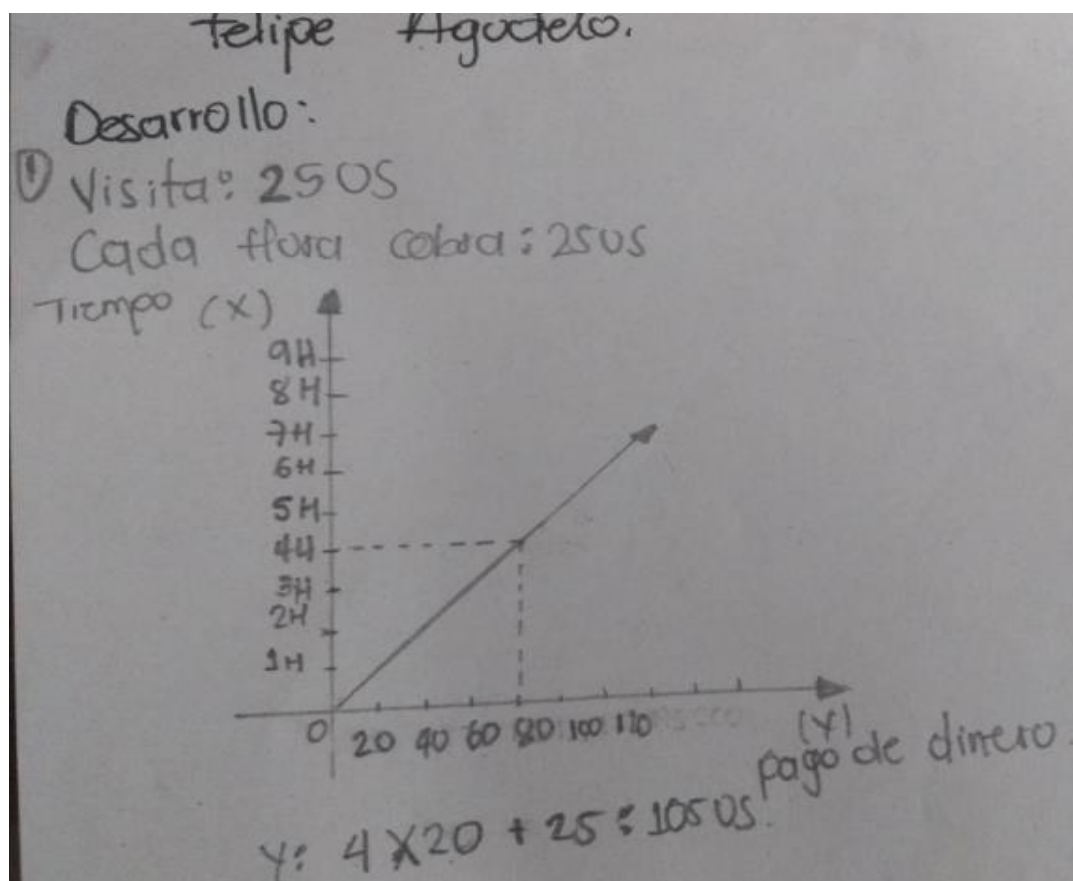 Felipe Agudelo.
Desarrollo:
① Visita: 25 US
Cada Hora cobra: 25 US
Tiempo (X)
9H
8H
7H
6H
5H
4H
3H
2H
1H
0 20 40 60 80 100 120
(Y)
pago de dinero.
Y: 4 X 20 + 25 : 105 US.